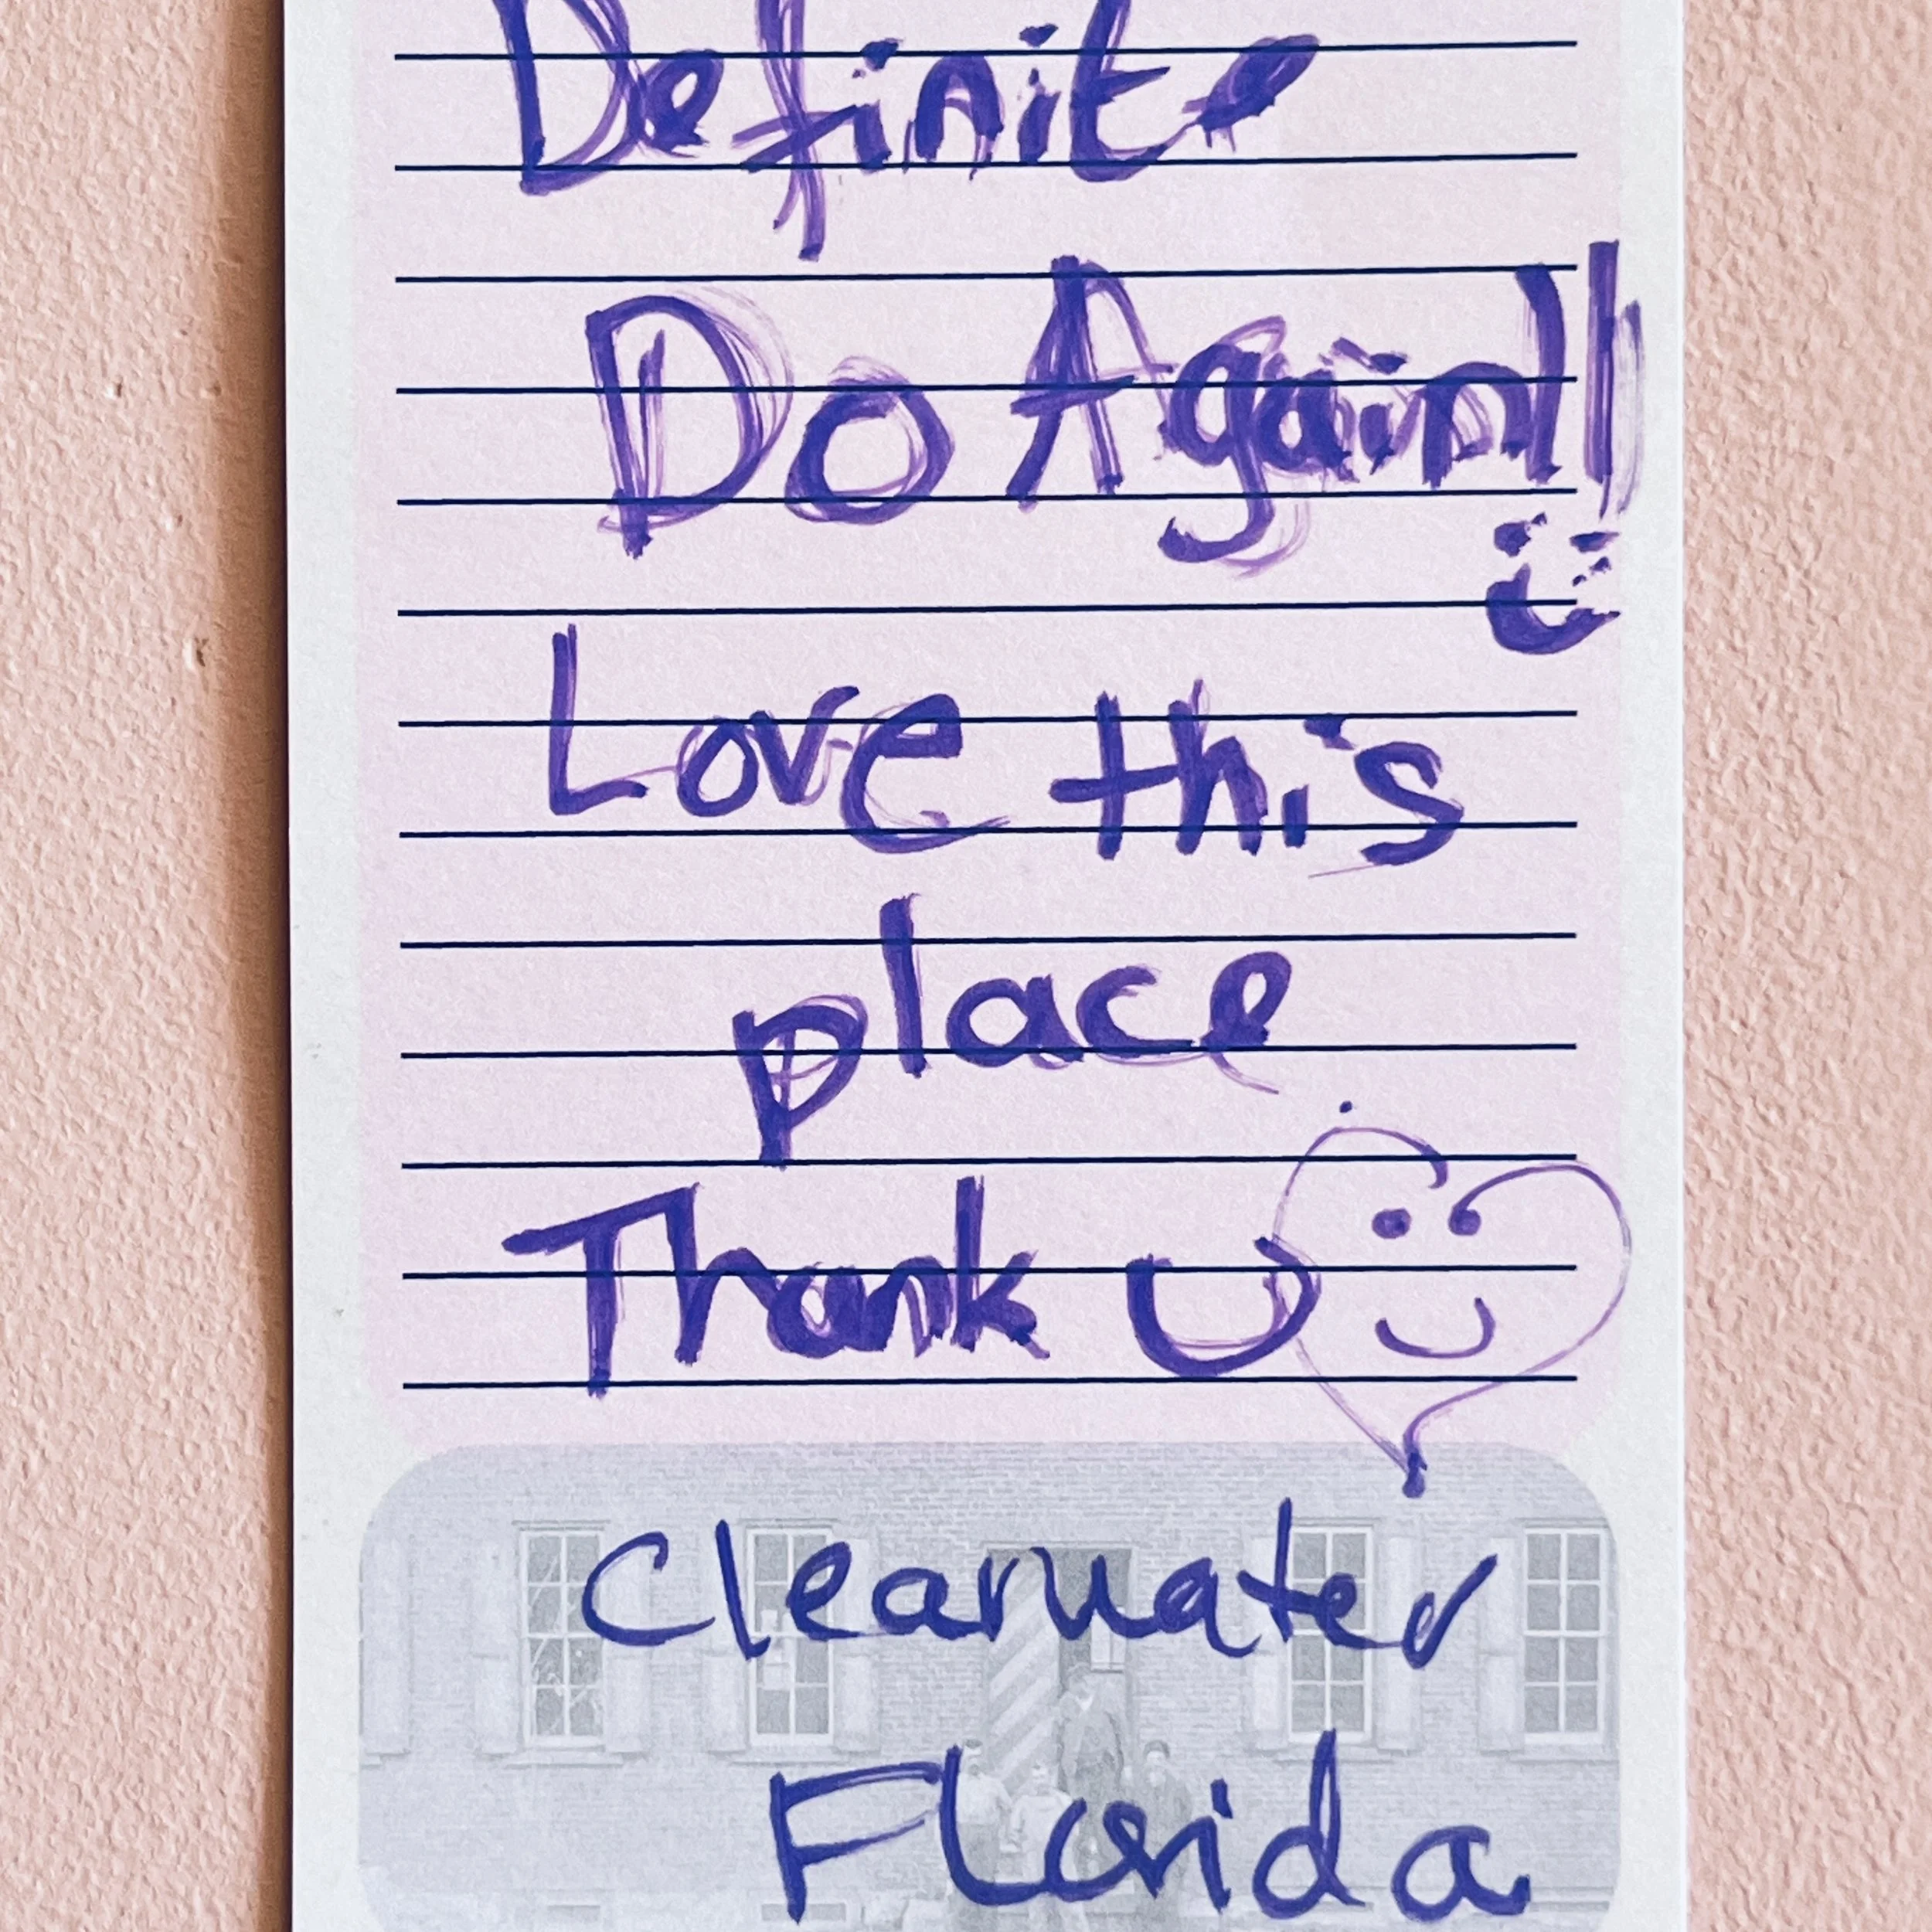 Definite
Do Again!!
Love this
place
Thank U
Clearwater
Florida